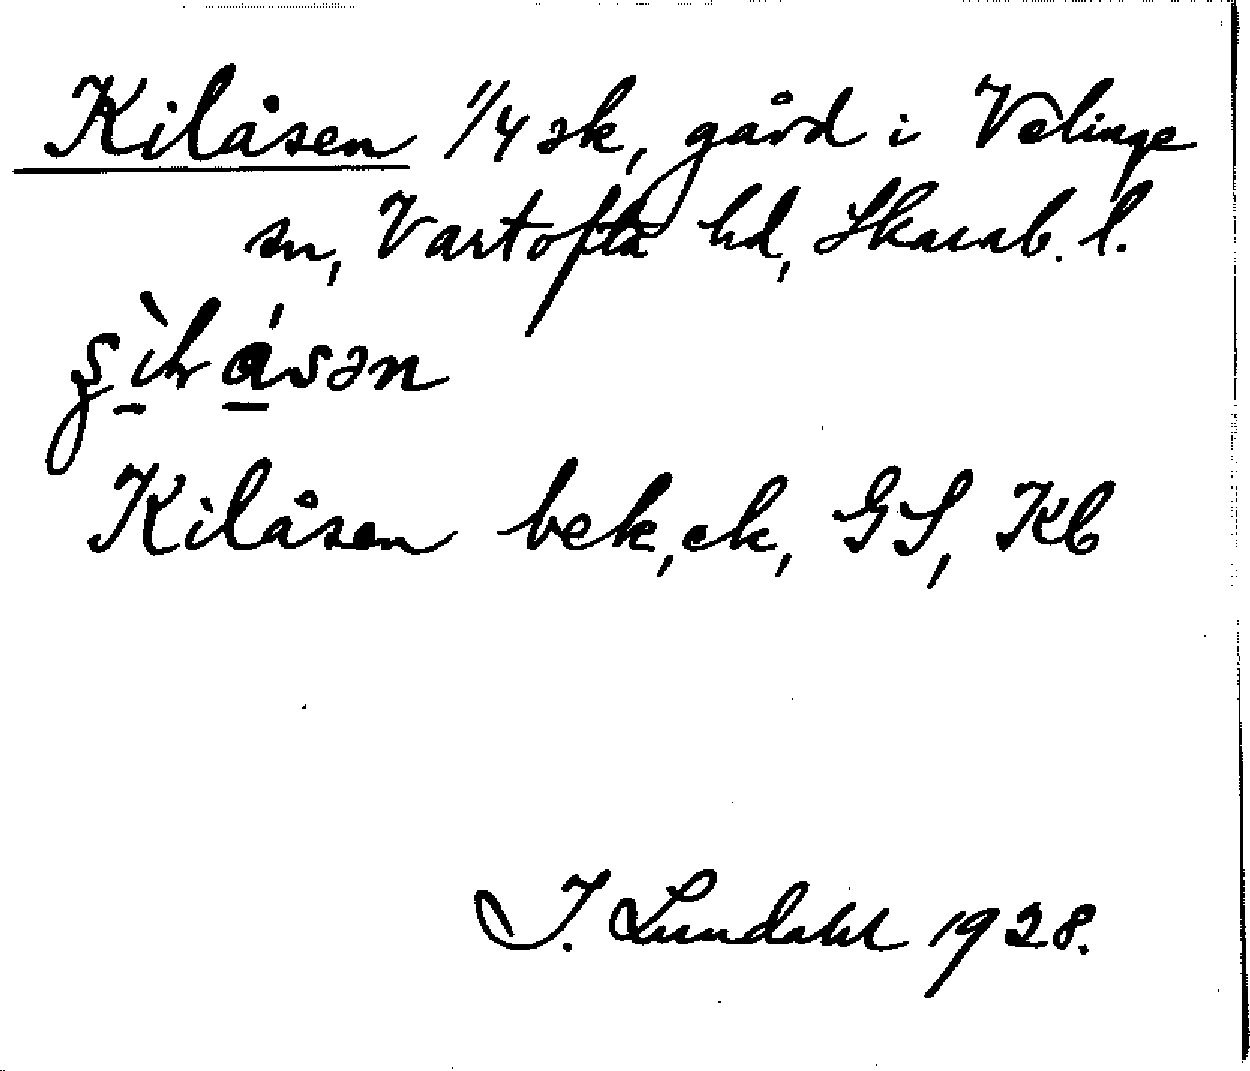 Kilåsen 1/4 sk, gård i Velinge
sn, Vartofta hd, Skarab. l.
Kilåsen bek, ek, GS, Kb
I. Lundahl 1928.